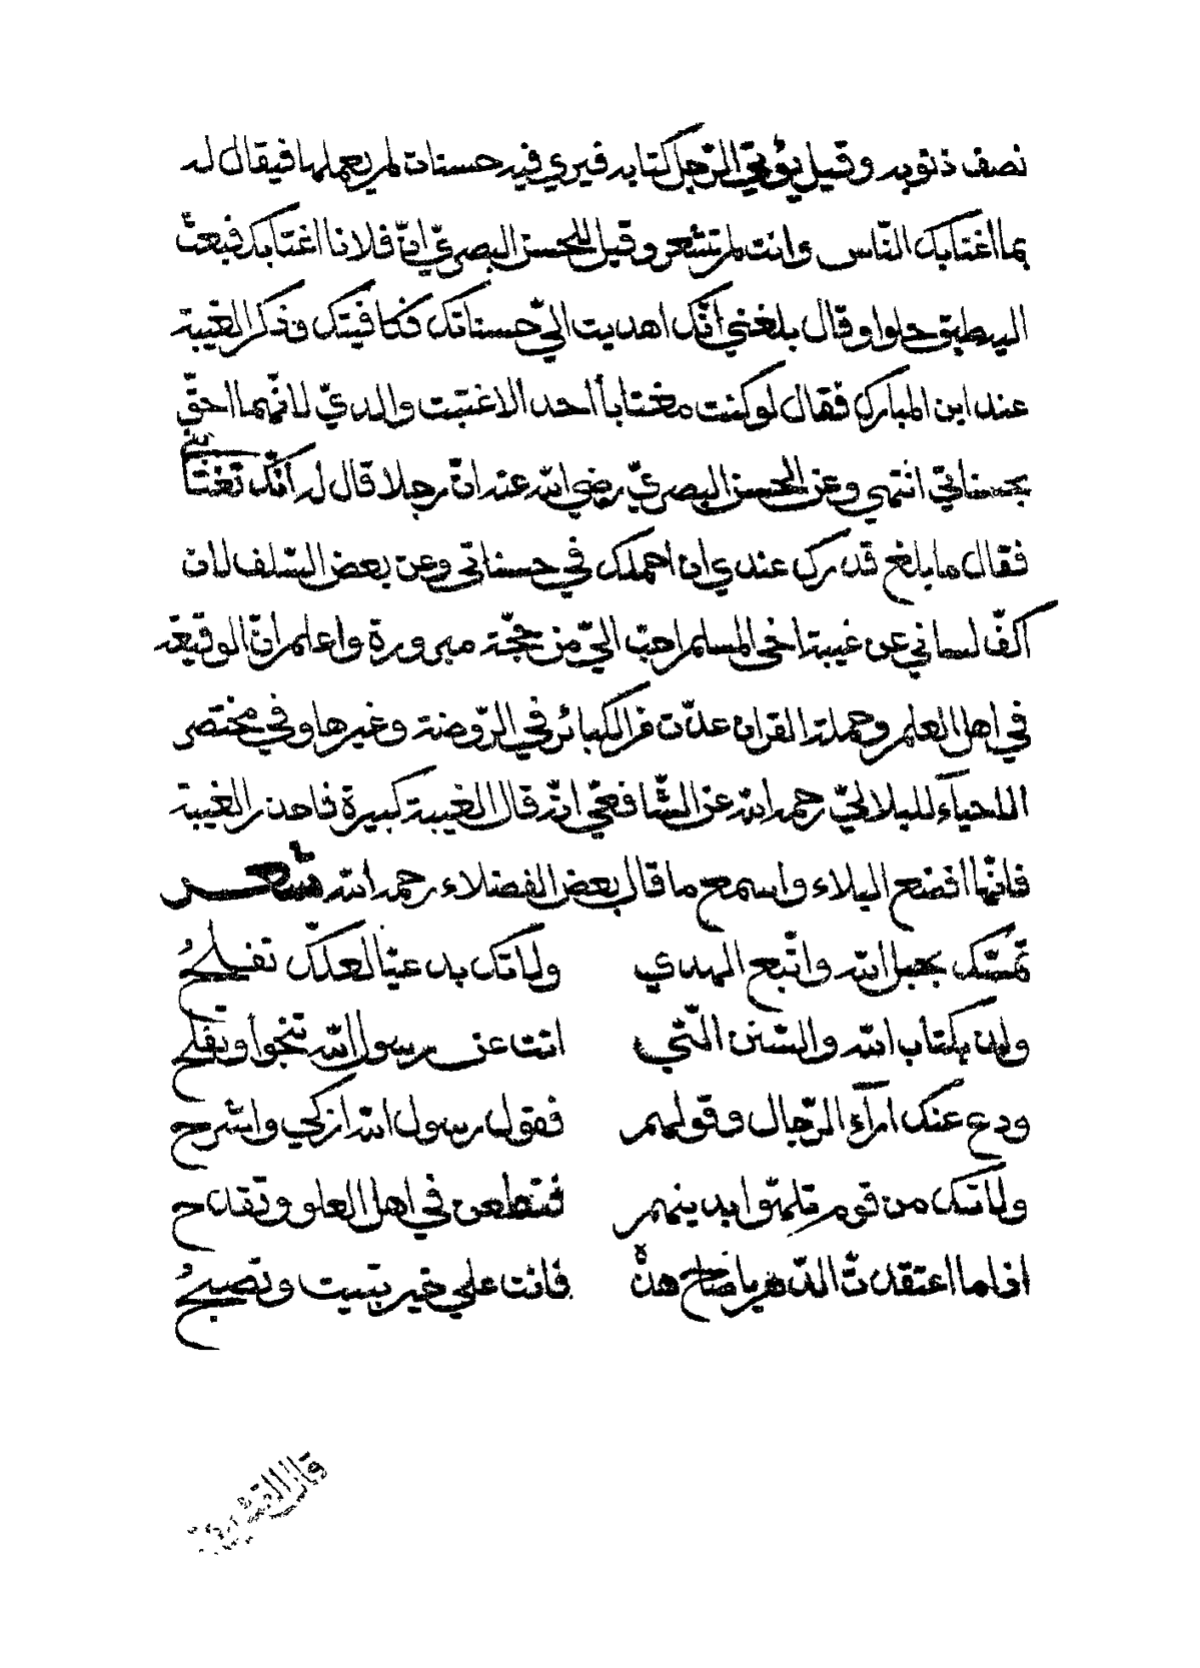 نصف ذنوبه وقيل يؤتي الرّجل كتابه فيري فيه حسنات لم يعملها فيقال له
بما اغتابك النّاس وانت لم تشعر وقيل للحسن البصريّ انّ فلانا اغتابك فبعث
اليه طبق حلوا وقال بلغني أنّك اهديت اليّ حسناتك فكافيتك وذكر الغيبة
عند ابن المبارك فقال لو كنت مغتاباً احد الاغتبت والديّ لانّهما احقّ
بحسناتي انتهي وعن الحسن البصريّ رضي الله عنه انّ رجلا قال له أنّك تغتابني
فقال ما بلغ قدرك عندي ان احملك في حسناتي وعن بعض السّلف لان
اكفّ لساني عن غيبة اخى المسلم احبّ اليّ من حجّة مبرورة واعلم انّ الوقيعة
في اهل العلم وحملة القران عدّت من الكبائر في الرّوضة وغيرها وفي مختصر
الاحياء للبلاليّ رحمه الله عن الشّافعيّ انّه قال الغيبة كبيرة فاحذر الغيبة
فانّها افضع البلاء واسمع ما قال بعض الفضلاء رحمه الله شعر
تمسّك بحبل الله واتّبع الهدي ولاتك بدعيّا لعلّك تفلحُ
ولذ بكتاب الله والسّنن الّتي اتت عن رسول الله تنجوا وتفلح
ودع عنك آرآء الرّجال وقولهم فقول رسول الله ازكي واشرح
ولاتك من قوم تلهّوا بدينهم فتطعن في اهل العلو وتقدح
اذا ما اعتقدتّ الدّهر يا صاح هذه فانت علي خير تبيت وتصبحُ